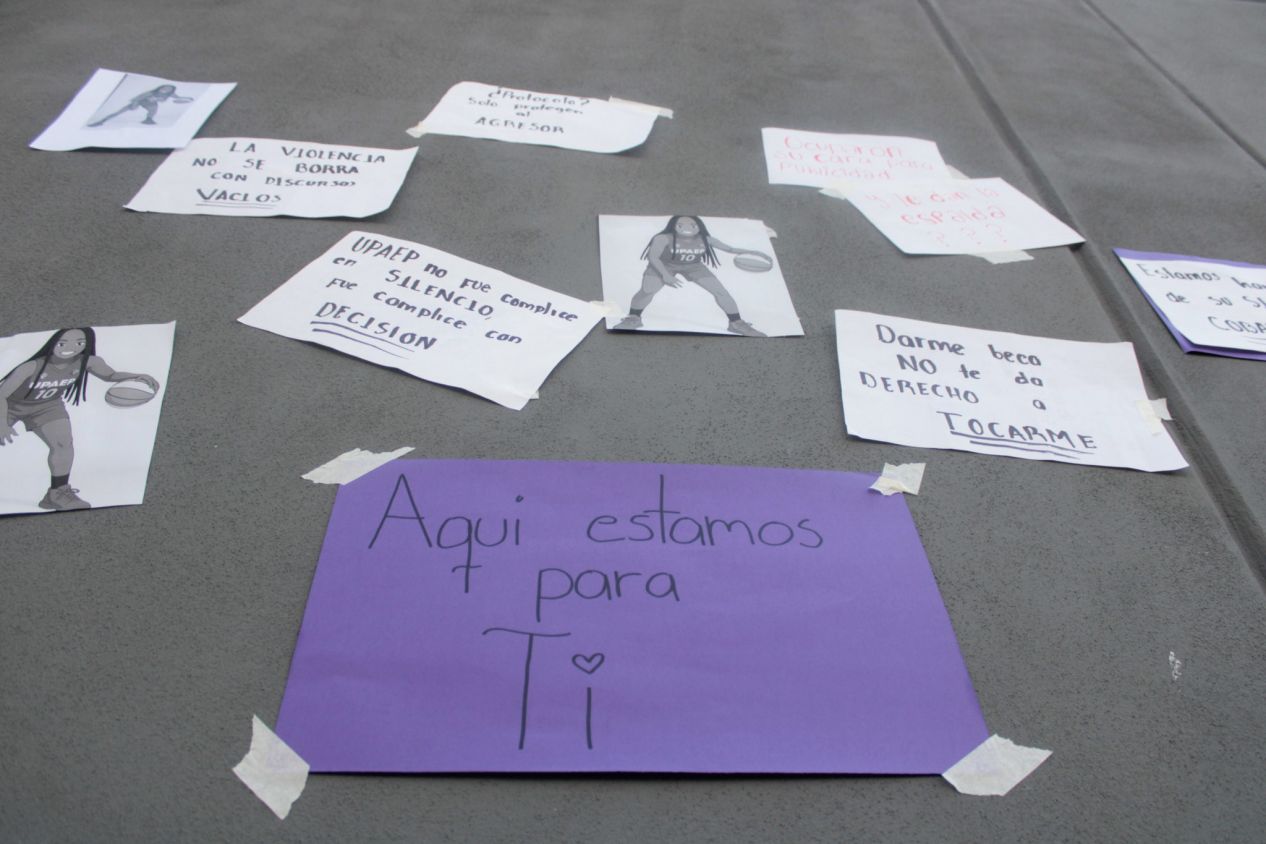 ¿Protocolo?
Solo protegen
al
AGRESOR
LA VIOLENCIA
NO SE BORRA
CON DISCURSOS
VACIOS
Ocuparon
su cara para
Publicidad
y le dan la
espalda
? ? ?
UPAEP no fue complice
en SILENCIO,
fue complice con
DECISION
UPAEP
10
Estamos
de su
Darme beca
NO te da
DERECHO a
TOCARME
UPAEP
10
Aqui estamos
para
Ti